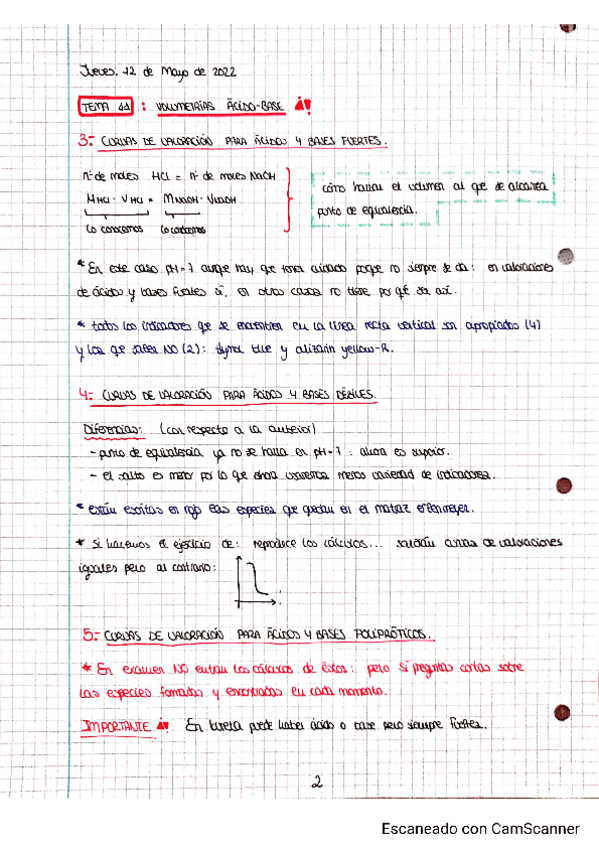 Jueves, 12 de Mayo de 2022
TEMA 11 : VOLUMETRÍAS ÁCIDO-BASE
3.- CURVAS DE VALORACIÓN PARA ÁCIDOS Y BASES FUERTES.
nº de moles HCl = nº de moles NaOH
MHCl · VHCl = MNaOH · VNaOH
lo conocemos lo conocemos
cómo hallar el volumen al que se alcanza
punto de equivalencia.
* En este caso pH = 7 aunque hay que tener cuidado porque no siempre se da : en valoraciones
de ácidos y bases fuertes sí, en otros casos no tiene por qué ser así.
* todos los indicadores que se encuentren en la línea recta vertical son apropiados (4)
y los que salen NO (2) : thymol blue y alizarin yellow-R.
4.- CURVAS DE VALORACIÓN PARA ÁCIDOS Y BASES DÉBILES.
Diferencias: (con respecto a la anterior)
- punto de equivalencia ya no se halla en pH = 7 : ahora es superior.
- el salto es menor por lo que ahora usaremos menos variedad de indicadores.
* están escritas en rojo las especies que quedan en el matraz erlenmeyer.
* si hacemos el ejercicio de : reproduce los cálculos... saldrán curvas de valoraciones
iguales pero al contrario :
5.- CURVAS DE VALORACIÓN PARA ÁCIDOS Y BASES POLIPRÓTICOS.
* En examen NO entran los cálculos de éstos : pero sí preguntas cortas sobre
las especies formadas y encontradas en cada momento.
IMPORTANTE En bureta puede haber ácido o base pero siempre fuertes.
2
Escaneado con CamScanner